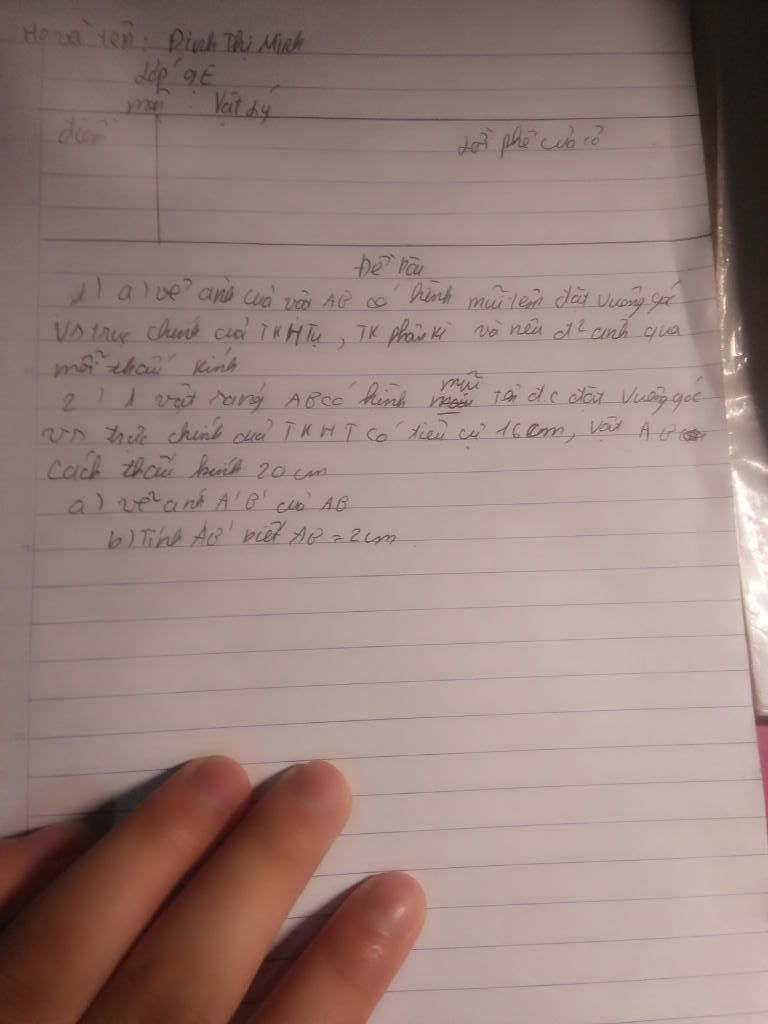 Họ và tên: Đinh Thị Minh
Lớp 9E
môn: Vật Lý
điểm
Lời phê của cô
Đề bài
1) a) vẽ ảnh của vật AB có hình mũi tên đặt vuông góc
vs trục chính của TKHTụ, TK phân kì và nêu đ² ảnh qua
mỗi thấu kính
2) 1 vật sáng AB có hình mũi tên đ.c đặt vuông góc
vs trục chính của TKHT có tiêu cự 16cm, vật AB
cách thấu kính 20 cm
a) vẽ ảnh A'B' của AB
b) Tính A'B' biết AB = 2cm